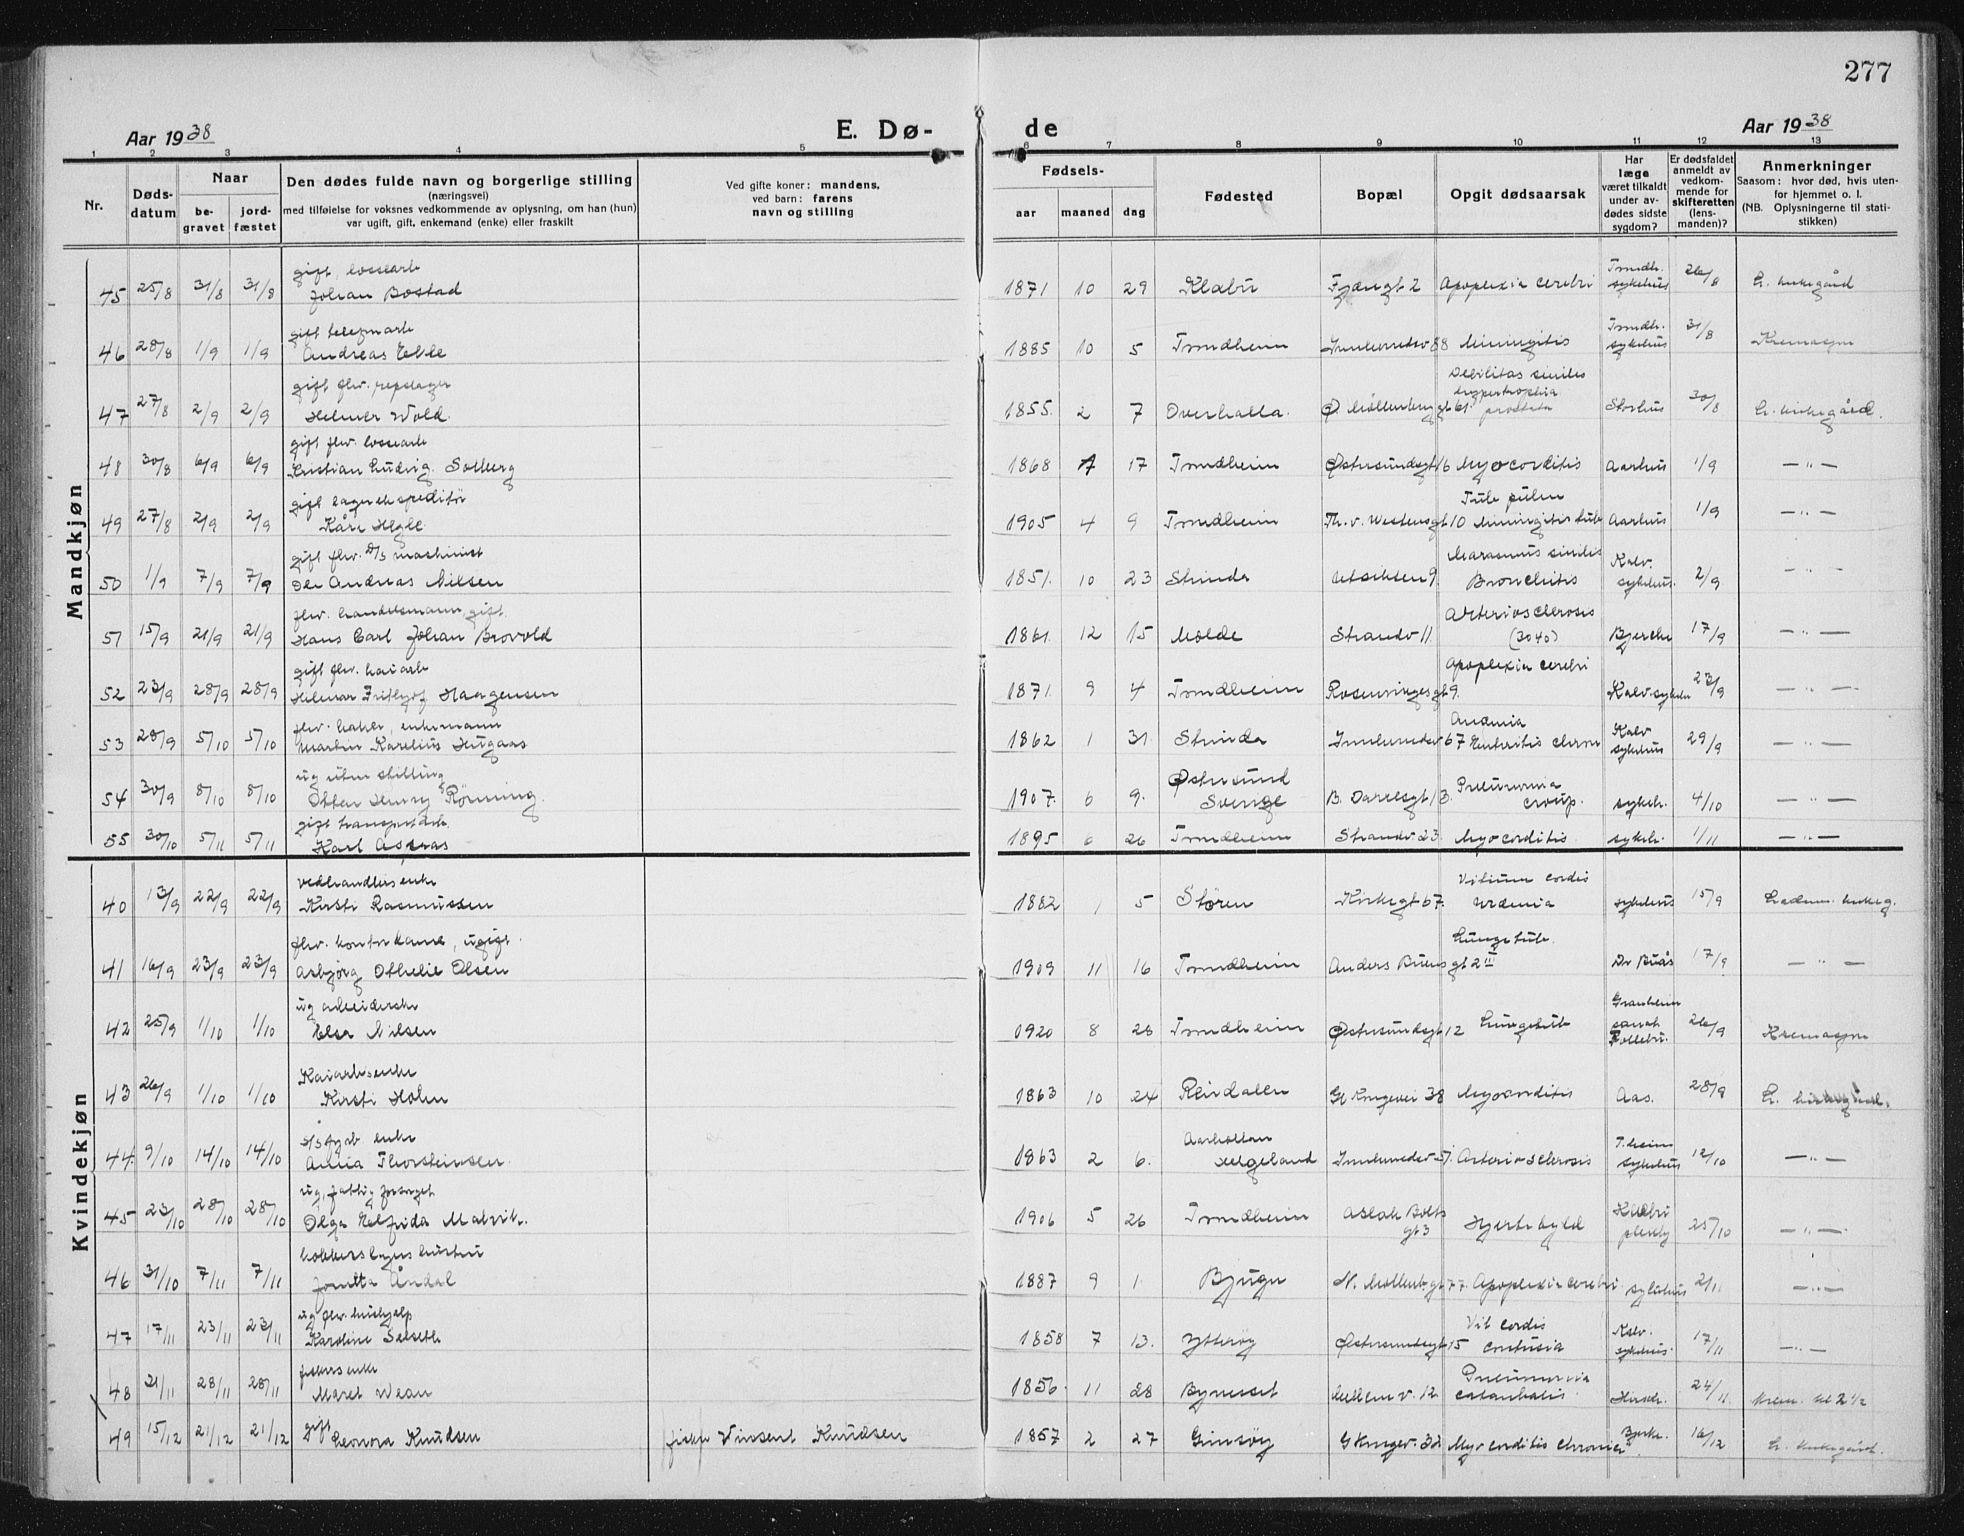 277
Aar 1938
E. Dø-
de
Aar 1938
1 2 3 4 5 6 7 8 9 10 11 12 13
Nr.
Døds-
datum
Naar
be-
gravet
jord-
fæstet
Den dødes fulde navn og borgerlige stilling
(næringsvei)
med tilføielse for voksnes vedkommende av oplysning, om han (hun)
var ugift, gift, enkemand (enke) eller fraskilt
Ved gifte koner: mandens,
ved barn: farens
navn og stilling
Fødsels-
aar maaned dag
Fødested
Bopæl
Opgit dødsaarsak
Har
læge
været tilkaldt
under av-
dødes sidste
sygdom?
Er dødsfaldet
anmeldt av
vedkom-
mende for
skifteretten
(lens-
manden)?
Anmerkninger
Saasom: hvor død, hvis uten-
for hjemmet o. l.
(NB. Oplysningerne til stati-
stikken)
Mandkjøn
gift, lossearb
45 25/8 31/8 31/8 Johan Bostad 1871 10 29 Klæbu Fjæregt 2 Apoplexia cerebri Trondh. sykehus 26/8 L. kirkegård
gift
46 28/8 1/9 1/9 Andreas 1885 10 5 Trondheim Innherredsv 88 Miningitis Trondh. sykehus 31/8 Kremasjon
gift fhv. repslager
47 27/8 2/9 2/9 Helmer Wold 1855 2 7 Overhalla Ø. Møllenberggt 61 Debilitas sinilis hypertrophia prostata 30/8 L. kirkegård
gift fhv. lossearb
48 30/8 6/9 6/9 Kristian Ludvig Solberg 1868 17 Trondheim Østersundsgt 16 Myocorditis Aarhus 1/9 — " —
gift lagerekspeditør
49 27/8 2/9 2/9 Kåre 1905 4 9 Trondheim Th. v. Westensgt 10 Tub. pulm Miningitis tub Aarhus 1/9 — " —
gift fhv. D/S maschinist
50 1/9 7/9 7/9 Ole Andreas Nilsen 1851 10 23 Strinda Utsikten 9 Marasmus sinilis Bronchitis Kalv. sykehus 2/9 — " —
fhv. handelsmann, gift
51 15/9 21/9 21/9 Hans Carl Johan Brovold 1861 12 15 Molde Strandv 11 Arterioschlerosis (3040) Bjercke 17/9 — " —
gift fhv. kaiarb
52 23/9 28/9 28/9 Hilmar Frithjof Haagensen 1871 9 4 Trondheim gt 9 Apoplexia cerebri Kalv sykehus 23/9 — " —
fhv. baker, enkemann
53 28/9 5/10 5/10 Martin Karelius Haugaas 1862 1 31 Strinda Innherredsv 67 Anemia chron Kalv sykehus 29/9 — " —
ug uten stilling
54 30/9 8/10 8/10 Henry Rönning 1907 6 9 Østersund Sverige 13 Pneumonia croup. sykeh. 4/10 — " —
gift transportarb.
55 30/10 5/11 5/11 Karl Aasaas 1895 6 26 Trondheim Strandv 23 Myocorditis sykeh. 1/11 — " —
Kvindekjøn
vedhandlers enke
40 13/9 22/9 22/9 Kirsti Rasmussen 1882 1 5 Støren Kirkegt 67 Vitium cordis Uremia sykehus 15/9 Lademo. kirkeg.
fhv. kontordame, ugift
41 16/9 23/9 23/9 Asbjørg Othelie Olsen 1909 11 16 Trondheim Anders Buens gt 2 III Lungetub. Dr Buås 17/9 — " —
ug arbeiderske
42 25/9 1/10 1/10 Elsa Nilsen 1920 8 28 Trondheim Østersundsgt 12 Lungetub Granheim sanat Follebu. 26/9 Kremasjon
Kaiarb. enke
43 26/9 1/10 1/10 Kirsti Holm 1863 10 24 Reindalen Gl Kongevei 38 Myocorditis Aas. 28/9 L. kirkegård.
enke
44 9/10 14/10 14/10 Anna Thorsteinsen 1863 2 6 Helgeland Innherredsv 51 Arterioschlerosis T.heim sykehus 12/10 — " —
ug, fattig forsorget
45 23/10 28/10 28/10 Olga Elfrida Malvik 1906 5 26 Trondheim Aslak Bolts gt 3 Hjerte 25/10 — " —
hustru
46 31/10 7/11 7/11 Åndal 1887 9 1 Bjugn N. Møllenb. gt 77 Apoplexia cerebri sykehus 2/11 — " —
ug fhv. hushjelp
47 17/11 23/11 23/11 Karoline 1858 7 13 Ytterøy Østersundsgt 15 Vit cordis Contusia Kalv. sykehus 17/11 — " —
fiskers enke
48 21/11 28/11 28/11 Maret 1856 11 28 Bynesset Mellemv. 12 Pneumonia catarrhalis 24/11 Krem. kl 2 1/2
gift
49 15/12 21/12 21/12 Leonora Knudsen Vinsent Knudsen 1857 2 27 Gimsøy G Kongev. 32 Myocorditis chronica Bjerke. 16/12 L. kirkegård.